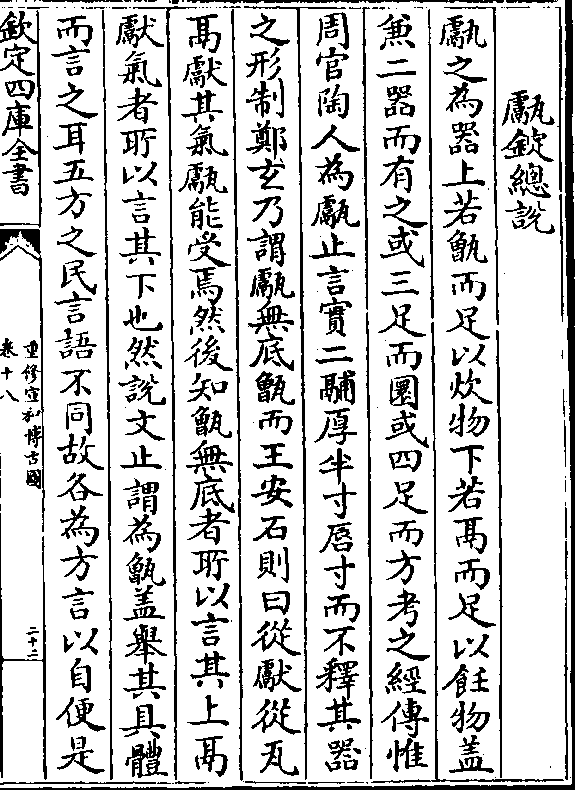 甗錠總說
甗之為器上若甑而足以炊物下若鬲而足以飪物盖
兼二器而有之或三足而圜或四足而方考之經傳惟
周官陶人為甗止言實二鬴厚半寸唇寸而不釋其器
之形制鄭玄乃謂甗無底甑而王安石則曰從獻從瓦
鬲獻其氣甗能受焉然後知甑無底者所以言其上鬲
獻氣者所以言其下也然說文止謂為甑盖舉其具體
而言之耳五方之民言語不同故各為方言以自便是
欽定四庫全書
重修宣和博古圖
卷十八
二十二